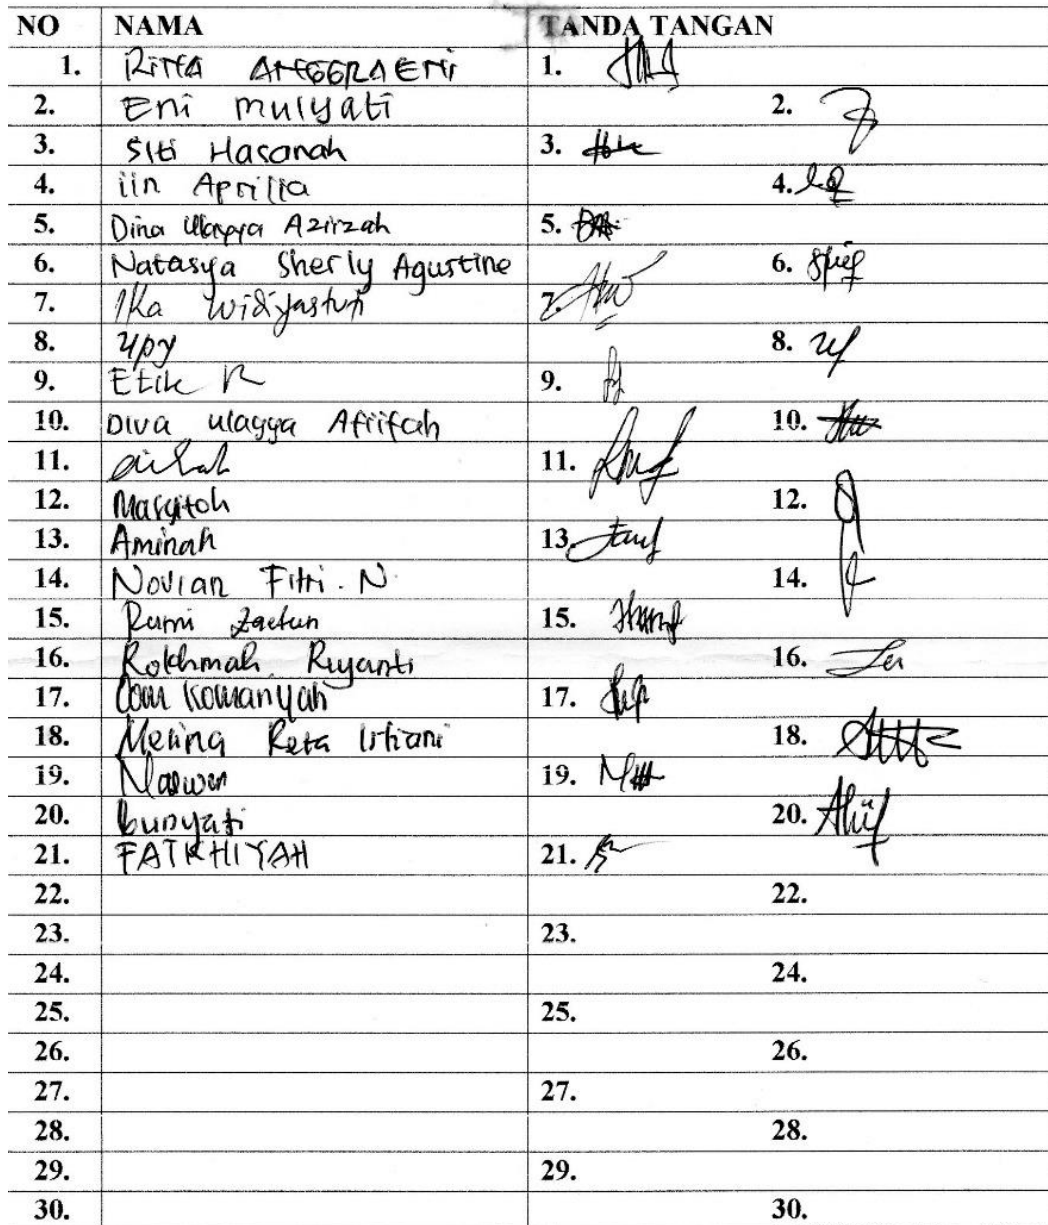 NO NAMA TANDA TANGAN
1. RITA ANGGRAENI 1.
2. Eni mulyati 2.
3. Siti Hasanah 3.
4. iin Aprilia 4.
5. Dina Ulayya Azirzah 5.
6. Natasya Sherly Agustine 6.
7. Ika Widiyastuti 7.
8. upy 8.
9. Etik R 9.
10. Diva ulayya Afrifah 10.
11. 11.
12. Masyitoh 12.
13. Aminah 13.
14. Novian Fitri. N 14.
15. Rumi Zaetun 15.
16. Rokhmah Riyanti 16.
17. Komariyah 17.
18. Melina Reta 18.
19. 19.
20. bunyati 20.
21. FATKHIYAH 21.
22. 22.
23. 23.
24. 24.
25. 25.
26. 26.
27. 27.
28. 28.
29. 29.
30. 30.